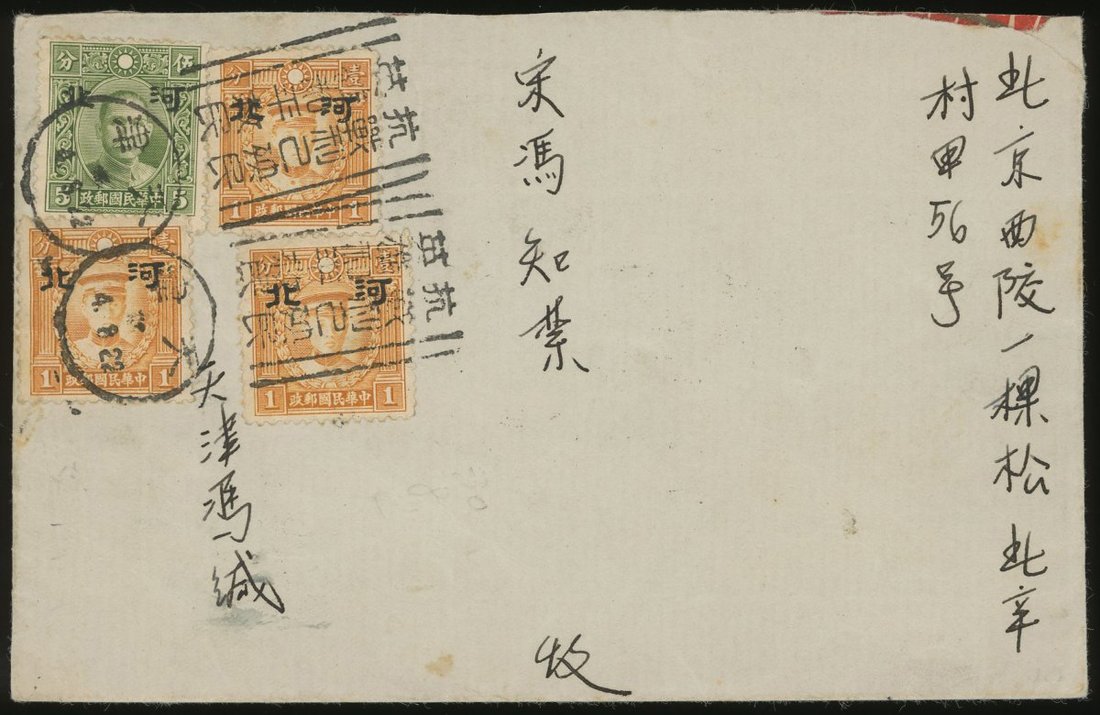 北京西陵一棵松北辛
村甲56号
宋馮知業
收
天津馮缄
伍分
河北
5 中華民國郵政 5
壹分
河北
1 中華民國郵政 1
壹分
河北
1 中華民國郵政 1
河北
1 中華民國郵政 1
抗英
抗英
4.8.22